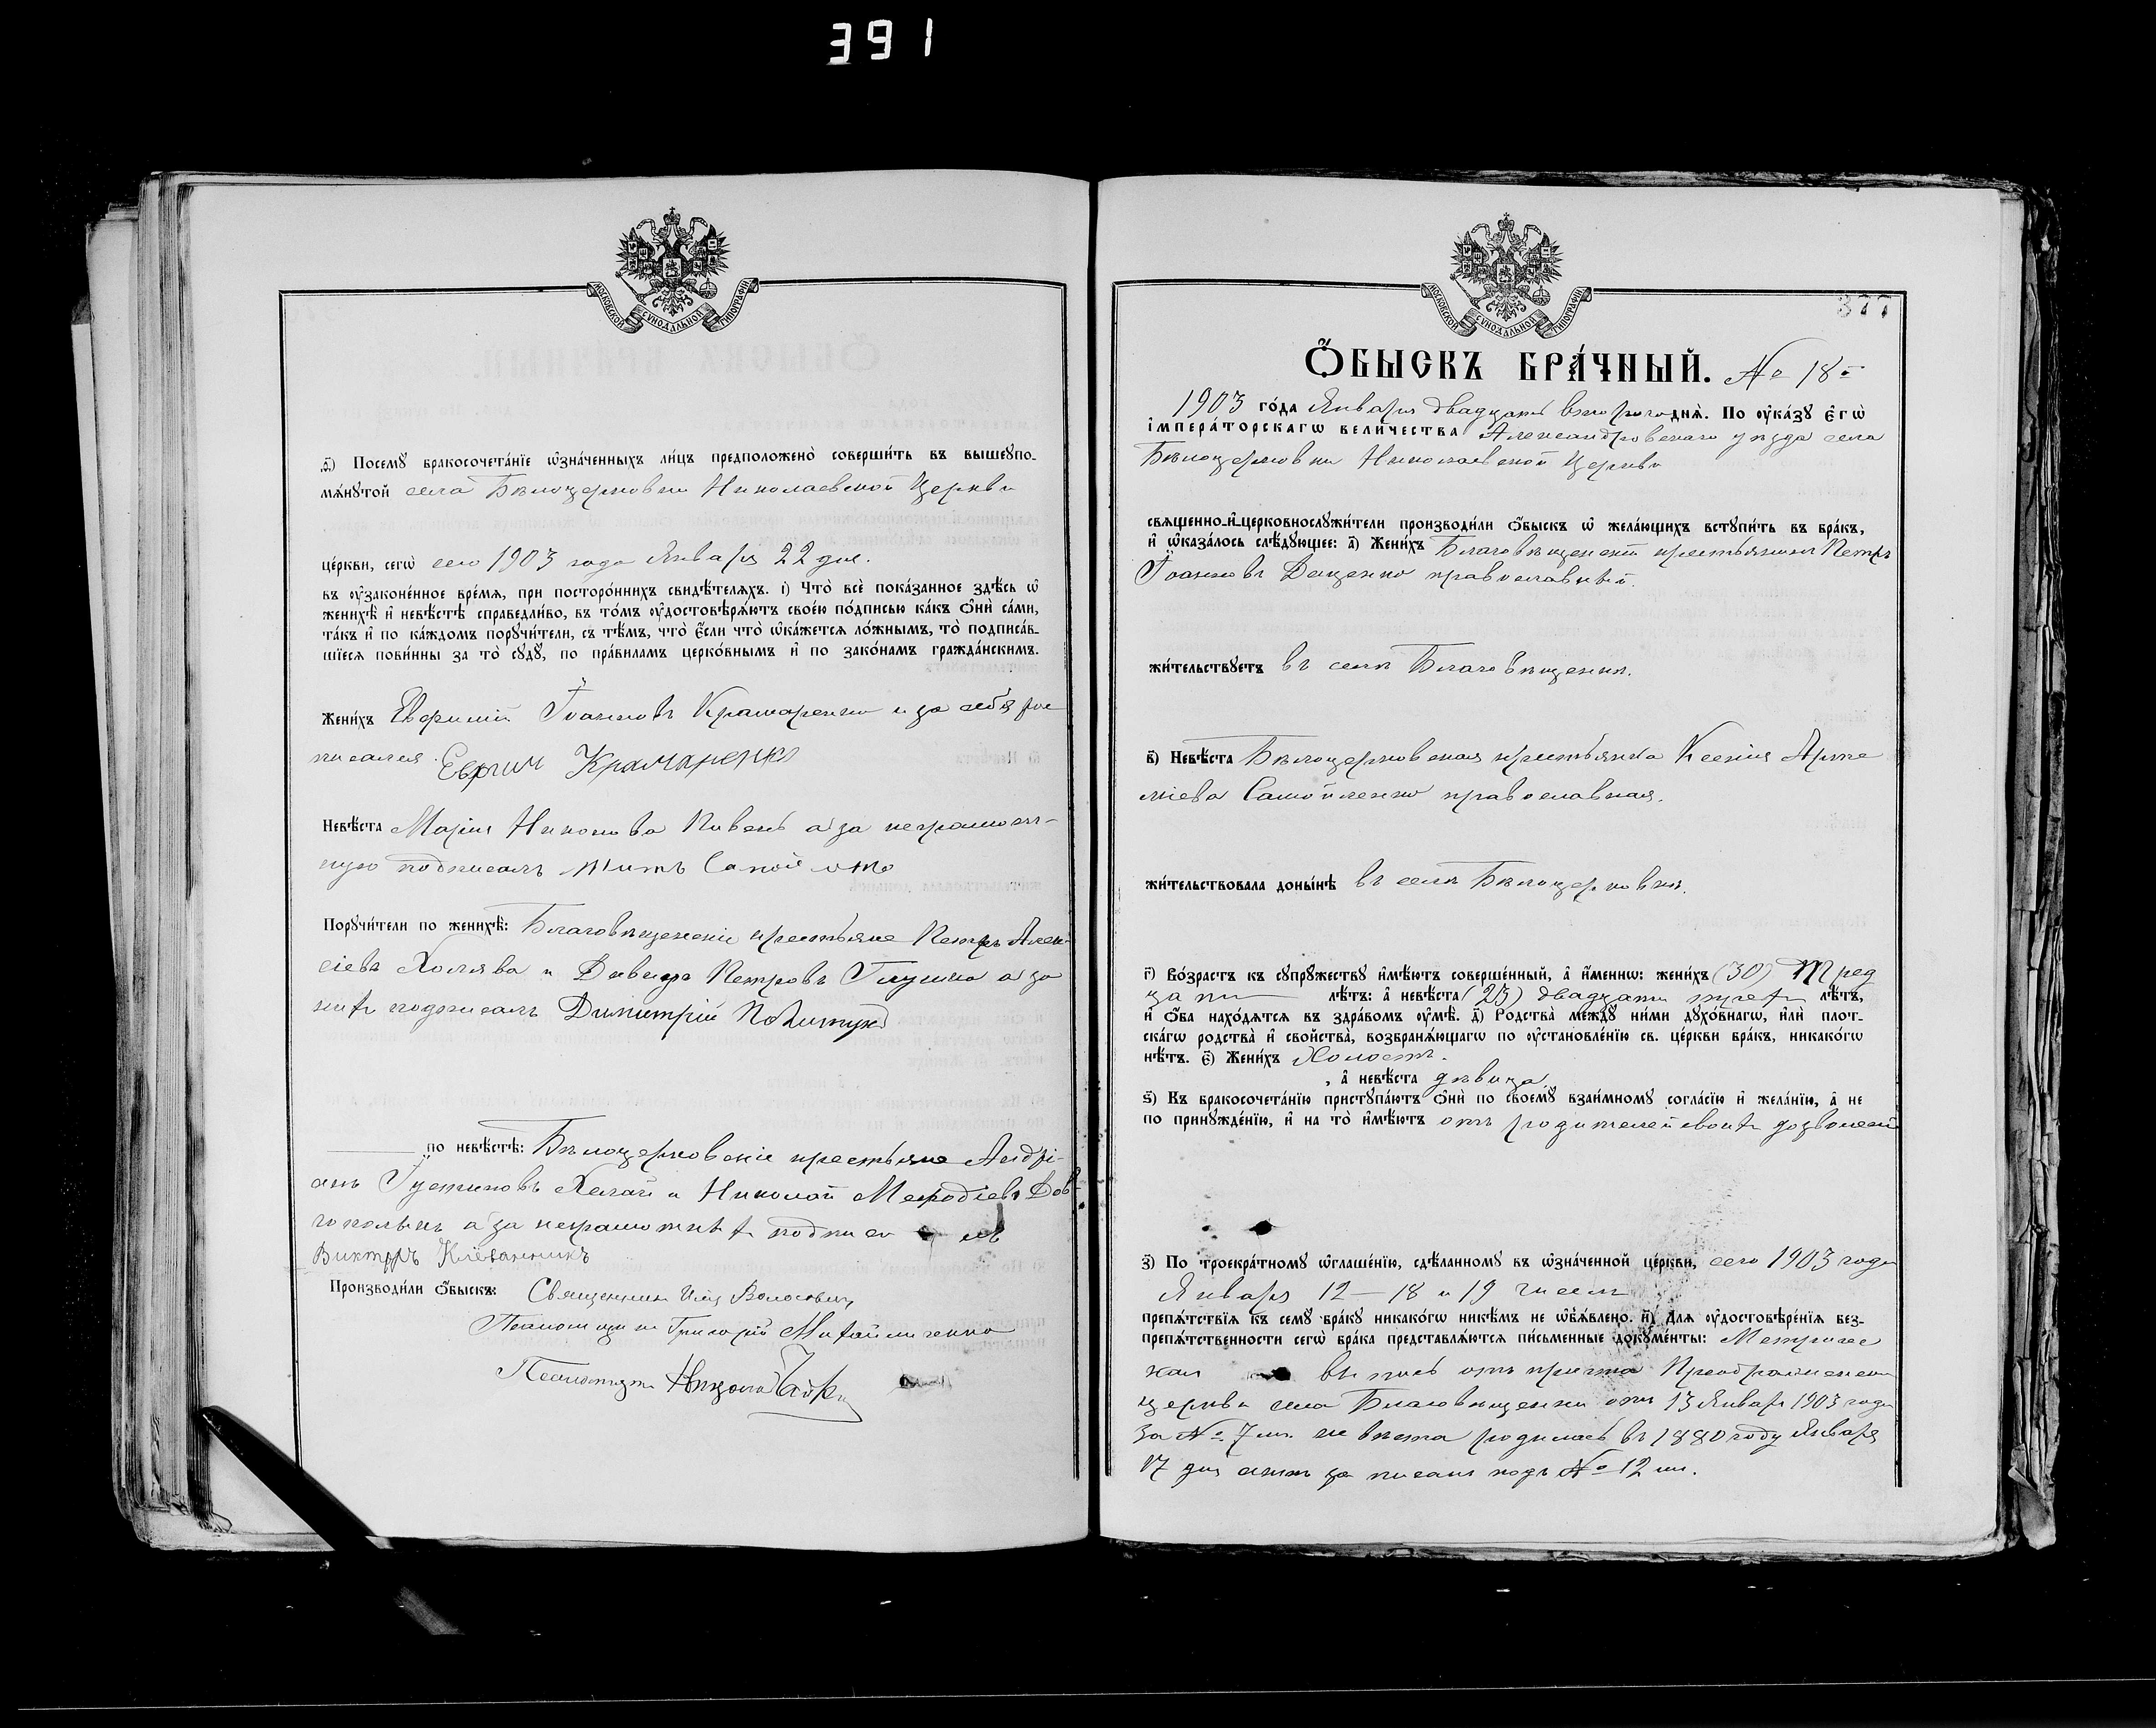 391
МОСКОВСКОЙ СѴНОДАЛЬНОЙ ТИПОГРАФІИ
ѳ҃) Посемꙋ бракосочета́нїе ѡ҆зна́ченныхъ ли́цъ предположено̀ соверши́ть въ вышеꙋпо-
мѧ́нꙋтой села Бѣлоцерковки Николаевской Церкви
це́ркви, сегѡ̀ сего 1903 года Января 22 дня.
въ ᲂу҆зако́ненное вре́мѧ, при посторо́ннихъ свидѣ́телѧхъ. і҃) Что̀ всѐ пока́занное здѣ́сь ѡ҆
женихѣ̀ и҆ невѣ́стѣ справедли́во, въ то́мъ ᲂу҆достовѣрѧ́ютъ свое́ю по́дписью ка́къ ѻ҆нѝ са́ми,
та́къ и҆ по ка́ждомъ порꙋчи́тели, съ тѣ́мъ, что̀ є҆́сли что̀ ѡ҆ка́жетсѧ ло́жнымъ, то̀ подписа́в-
шїесѧ пови́нны за то̀ сꙋдꙋ̀, по пра́виламъ церко́внымъ и҆ по зако́намъ гражда́нскимъ.
Жени́хъ Евфимій Іоанновъ Крамаренко и за себя рос
писался. Евфим Крамаренко
Невѣ́ста Марія Никонова Кивень а за неграмот-
ную подписалъ Титъ Самойленко
Порꙋчи́тели по женихѣ̀: Благовѣщенскіе крестьяне Петръ Алек-
сіевъ Холява и Давидъ Петровъ Глушко а за
нихъ подписалъ Димитрій Полищукъ
по невѣ́стѣ: Бѣлоцерковскіе крестьяне Андрі-
анъ Іустиновъ Халай и Николай Меѳодіевъ Дов-
гополикъ а за неграмотныхъ подписалъ
Викторъ Клеванникъ
Производи́ли ѻ҆́быскъ: Священникъ Илія Волосовичъ
Псаломщикъ Григорій Михайличенко
Псаломщикъ Николай Чайка
МОСКОВСКОЙ СѴНОДАЛЬНОЙ ТИПОГРАФІИ
377
Ѻ҆́БЫСКЪ БРА́ЧНЫЙ. № 18й
1903 го́да Января двадцать второго днѧ̀. По ᲂу҆ка́зꙋ Є҆гѡ̀
і҆мпера́торскагѡ вели́чества Александровскаго уѣзда села
Бѣлоцерковки Николаевской Церкви
свѧщенно-и҆-церковнослꙋжи́тели производи́ли ѻ҆́быскъ ѡ҆ жела́ющихъ встꙋпи́ть въ бра́къ,
и҆ ѡ҆каза́лось слѣ́дꙋющее: а҃) Жени́хъ Благовѣщенскій крестьянинъ Петръ
Іоанновъ Даценко православный.
жи́тельствꙋетъ въ селѣ Благовѣщенки.
в҃) Невѣ́ста Бѣлоцерковская крестьянка Ксенія Арте
міева Самойленко православная.
жи́тельствовала доны́нѣ въ селѣ Бѣлоцерковкѣ.
г҃) Во́зрастъ къ сꙋпрꙋ́жествꙋ и҆мѣ́ютъ соверше́нный, а҆ и҆́меннѡ: жени́хъ (30) Трид
цати лѣ́тъ: а҆ невѣ́ста (23) двадцати трехъ лѣ́тъ,
и҆ ѻ҆́ба нахо́дѧтсѧ въ здра́вомъ ᲂу҆мѣ̀. д҃) Родства̀ ме́ждꙋ ни́ми дꙋхо́внагѡ, и҆лѝ плот-
ска́гѡ родства̀ и҆ сво́йства, возбранѧ́ющагѡ по ᲂу҆становле́нїю св. це́ркви бра́къ, никако́гѡ
нѣ́тъ. є҃) Жени́хъ Холостъ.
, а҆ невѣ́ста дѣвица.
ѕ҃) Къ бракосочета́нїю пристꙋпа́ютъ ѻ҆нѝ по своемꙋ̀ взаи́мномꙋ согла́сїю и҆ жела́нїю, а҆ не
по принꙋжде́нїю, и҆ на то̀ и҆мѣ́ютъ отъ родителей своихъ дозволеніе
з҃) По троекра́тномꙋ ѡ҆глаше́нїю, сдѣ́ланномꙋ въ ѡ҆зна́ченной це́ркви, сего 1903 года
Января 12 — 18 и 19 чиселъ
препѧ́тствїѧ къ семꙋ̀ бра́кꙋ никако́гѡ никѣ́мъ не ѡ҆б̾ѧ́влено. и҃) Длѧ ᲂу҆достовѣре́нїѧ без-
препѧ́тственности сегѡ̀ бра́ка представлѧ́ютсѧ пи́сьменные докꙋме́нты: Метричес
кая выпись отъ причта Преображенской
церкви села Благовѣщенки отъ 13 Января 1903 года
за № 7мъ. невѣста родилась въ 1880 году Января
17 дня актъ записанъ подъ № 12 мъ.